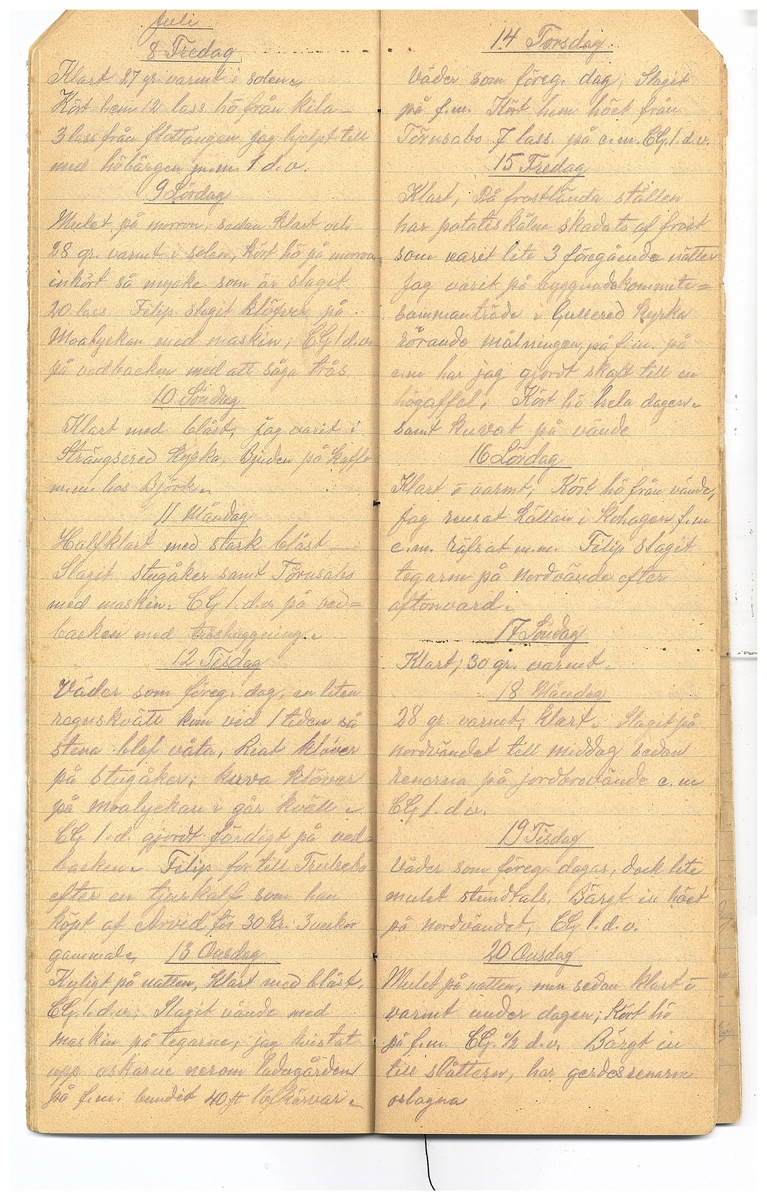 Juli
8 Fredag
Klart 27 gr. varmt i solen
Kört hem 12 lass hö från kila
3 lass från flottängen jag hjelpt till
med höbärgen m.m. 1 d.v.
9 Lördag
Mulet på morron, sedan klart och
28 gr. varmt i solen, Kört hö på morron
inkört så mycke som är slagit
20 lass. Filip slagit klöfver på
Moalyckan med maskin, CG 1 d.v.
på vedbacken med att såga träs
10 Söndag
Klart med blåst, jag varit i
Strängsered Kyrka. Bjuden på kaffe
m.m. hos Björk.
11 Måndag
Halfklart med stark blåst
Slagit stugåker samt Törnsabo
med maskin. CG 1. d.v. på ved=
backen med
12 Tisdag
Väder som föreg. dag, en liten
regnskvätt kom vid 1 tiden så
stena blef våta, Reat klöver
på stugåker; kurva klöver
på moalyckan i går kväll
CG 1. d. gjordt färdigt på ved=
backen. Filip for till
efter en tjurkalf som han
köpt af Arvid för 30 Kr. 3 veckor
gammal.
13 Onsdag
Kyligt på natten, klart med blåst.
CG. 1. d.v. Slagit vände med
maskin på tegarne; jag
upp askarne nerom ladugården
på f.m. bundit 40 st löfkärvar
14 Torsdag
Väder som föreg. dag, Slagit
på f.m. Kört hem höet från
Törnsabo 7 lass på e.m. CG. 1. d.v.
15 Fredag
Klart, På frostlända ställen
har potatiskålen skadats af frost
som varit lite 3 föregående nätter
Jag varit på byggnadskommite=
sammanträde i Gullered Kyrka
rörande målningen på f.m. på
e.m har jag gjordt skaft till en
högaffel. Kört hö hela dagen
samt kuvat på vände
16 Lördag
Klart o varmt; Kört hö från vände,
Jag rensat källan i Kohagen f.m
e.m. räfsat m.m. Filip slagit
tegarne på Nordvände efter
aftonvard.
17 Söndag
Klart; 30 gr. varmt.
18 Måndag
28 gr. varmt, klart. Slagit på
nordvändet till middag sedan
renorna på jordbrovände e.m
CG 1. d.v.
19 Tisdag
Väder som föreg. dagar, dock lite
mulet stundtals. Bärgt in höet
på nordvändet, CG 1. d.v.
20 Onsdag
Mulet på natten, men sedan klart o
varmt under dagen; Kört hö
på f.m. CG. 1/2 d.v. Bärgt in
till slåttern, har gerdesrenarne
oslagna